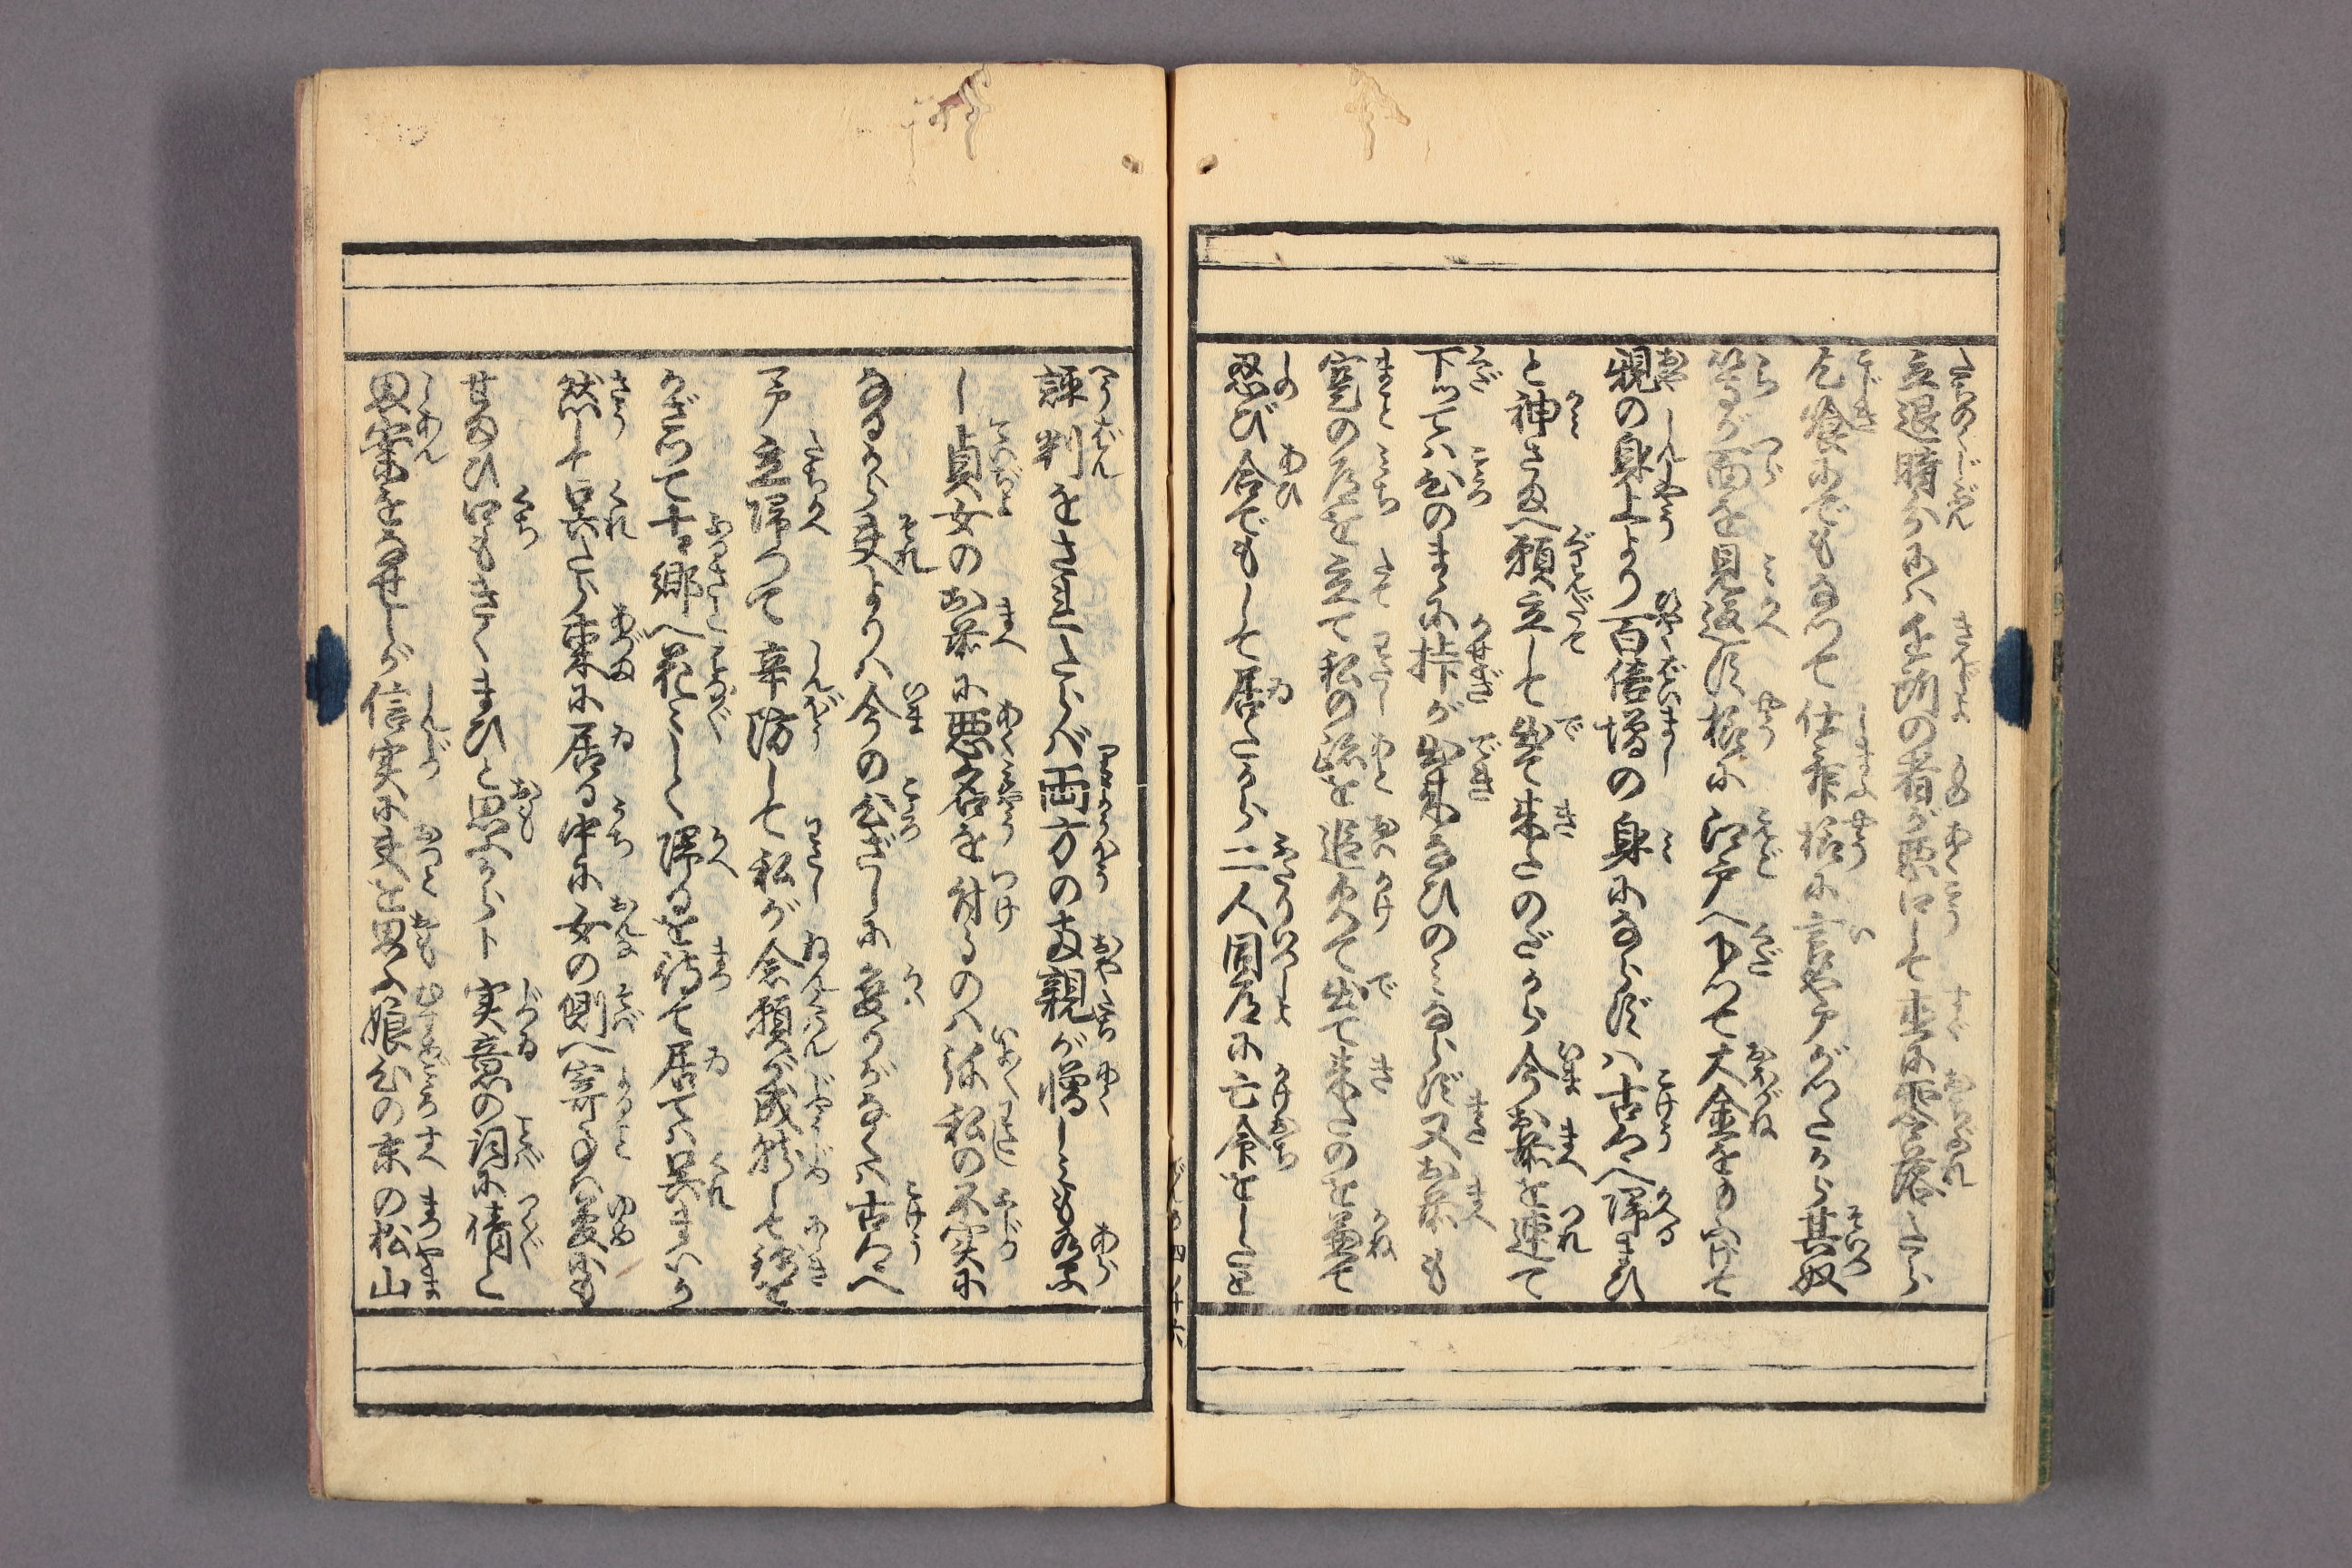 立退時分にハ近所の者が悪口して直に零落たら
乞食にでもなつて仕舞様に言やアがつたから其奴
等が面を見返す様に江戸へ下つて大金をもふけて
親の身上より百倍増の身にならずハ古郷へ帰るまひ
と神さまへ願立して出て来たのだから今お前を連て
下つてハ心のまゝに挊が出来なひのみならず又お前も
宅の首尾を立て私の跡を追欠て出て来たのを兼て
忍び合でもして居たから二人同道に亡命をしたと
評判をされたらバ両方の女親が憎しみもあら
し貞女のお前に悪名を付るのハ弥私の不実に
なるから夫よりハ今の心ざしに変りがなくハ古郷へ
予立帰つて辛防して私が念願が成就して錦を
かざつて古郷へ花々しく帰るを待て居て呉まいか
然して呉たら東に居る中に女の側へ寄る事ハ夢にも
せまひ口もきくまひと思ふからト実意の詞に情と
思案をなせしが信実に夫を思ふ娘心の末の松山